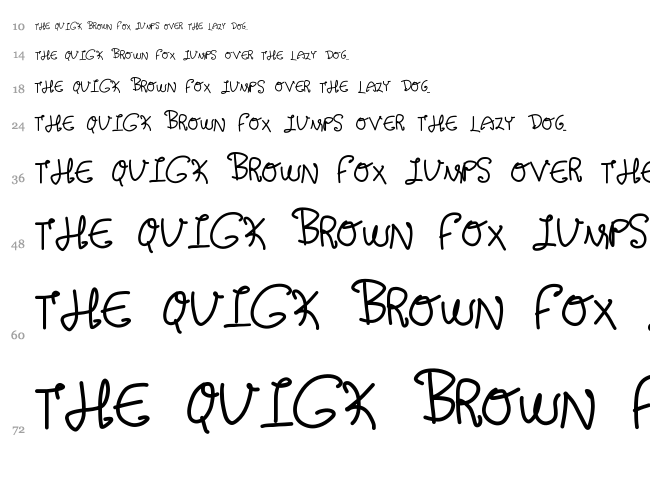 10 THE QUICK BROWN FOX JUMPS OVER THE LAZY DOG.
14 THE QUICK BROWN FOX JUMPS OVER THE LAZY DOG.
18 THE QUICK BROWN FOX JUMPS OVER THE LAZY DOG.
24 THE QUICK BROWN FOX JUMPS OVER THE LAZY DOG.
36 THE QUICK BROWN FOX JUMPS OVER THE
48 THE QUICK BROWN FOX JUMPS
60 THE QUICK BROWN FOX
72 THE QUICK BROWN F